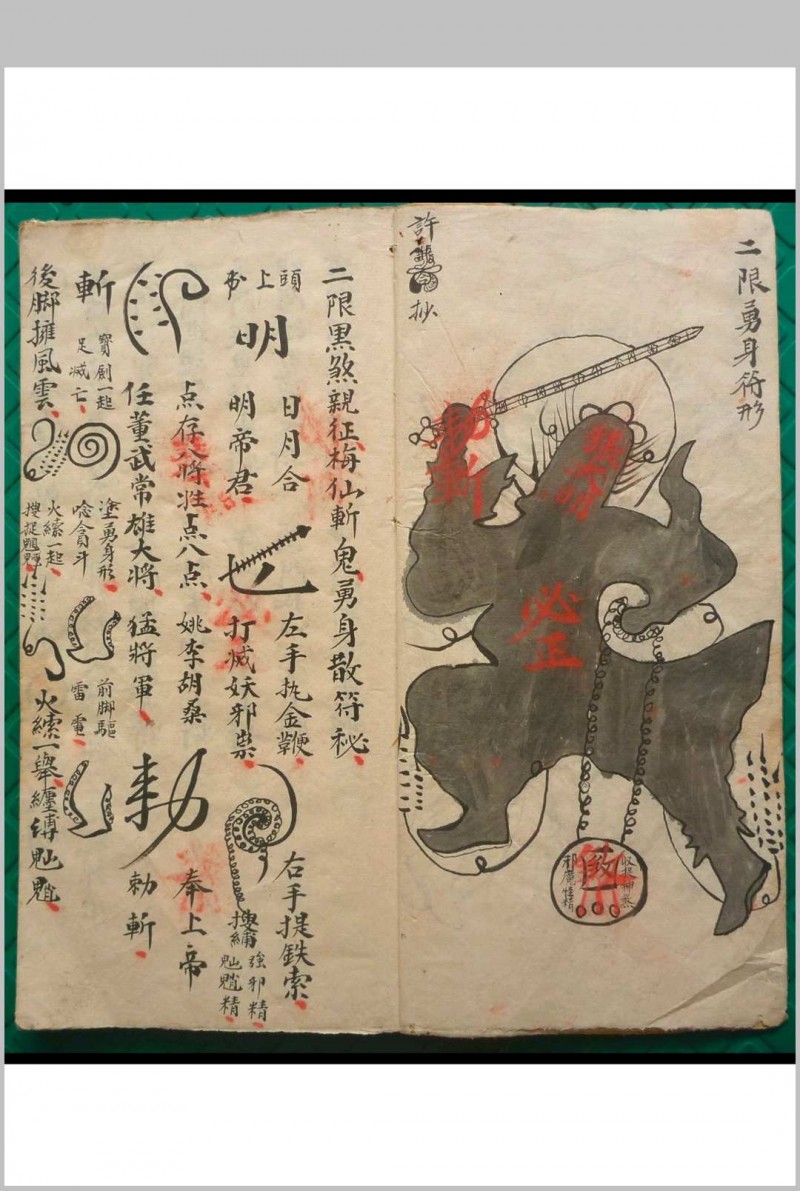 二限勇身符形
許
抄
勅斬
必正
收捉神煞
二限黑煞親征梅仙斬鬼勇身散符秘
頭上書
明
日月合明帝君
左手执金鞭打滅妖邪祟
右手提鉄索
搜縛強邪精魈精
点存八将姓点八点
姚李胡桑任董武常雄大将
猛將軍
勅
奉上帝勅斬
斬
寶劍一起
足滅亡
塗勇身形
唸貪斗
前脚驅雷電
後脚擁風雲
火繚一起
搜捉
火繚一舉纏縛